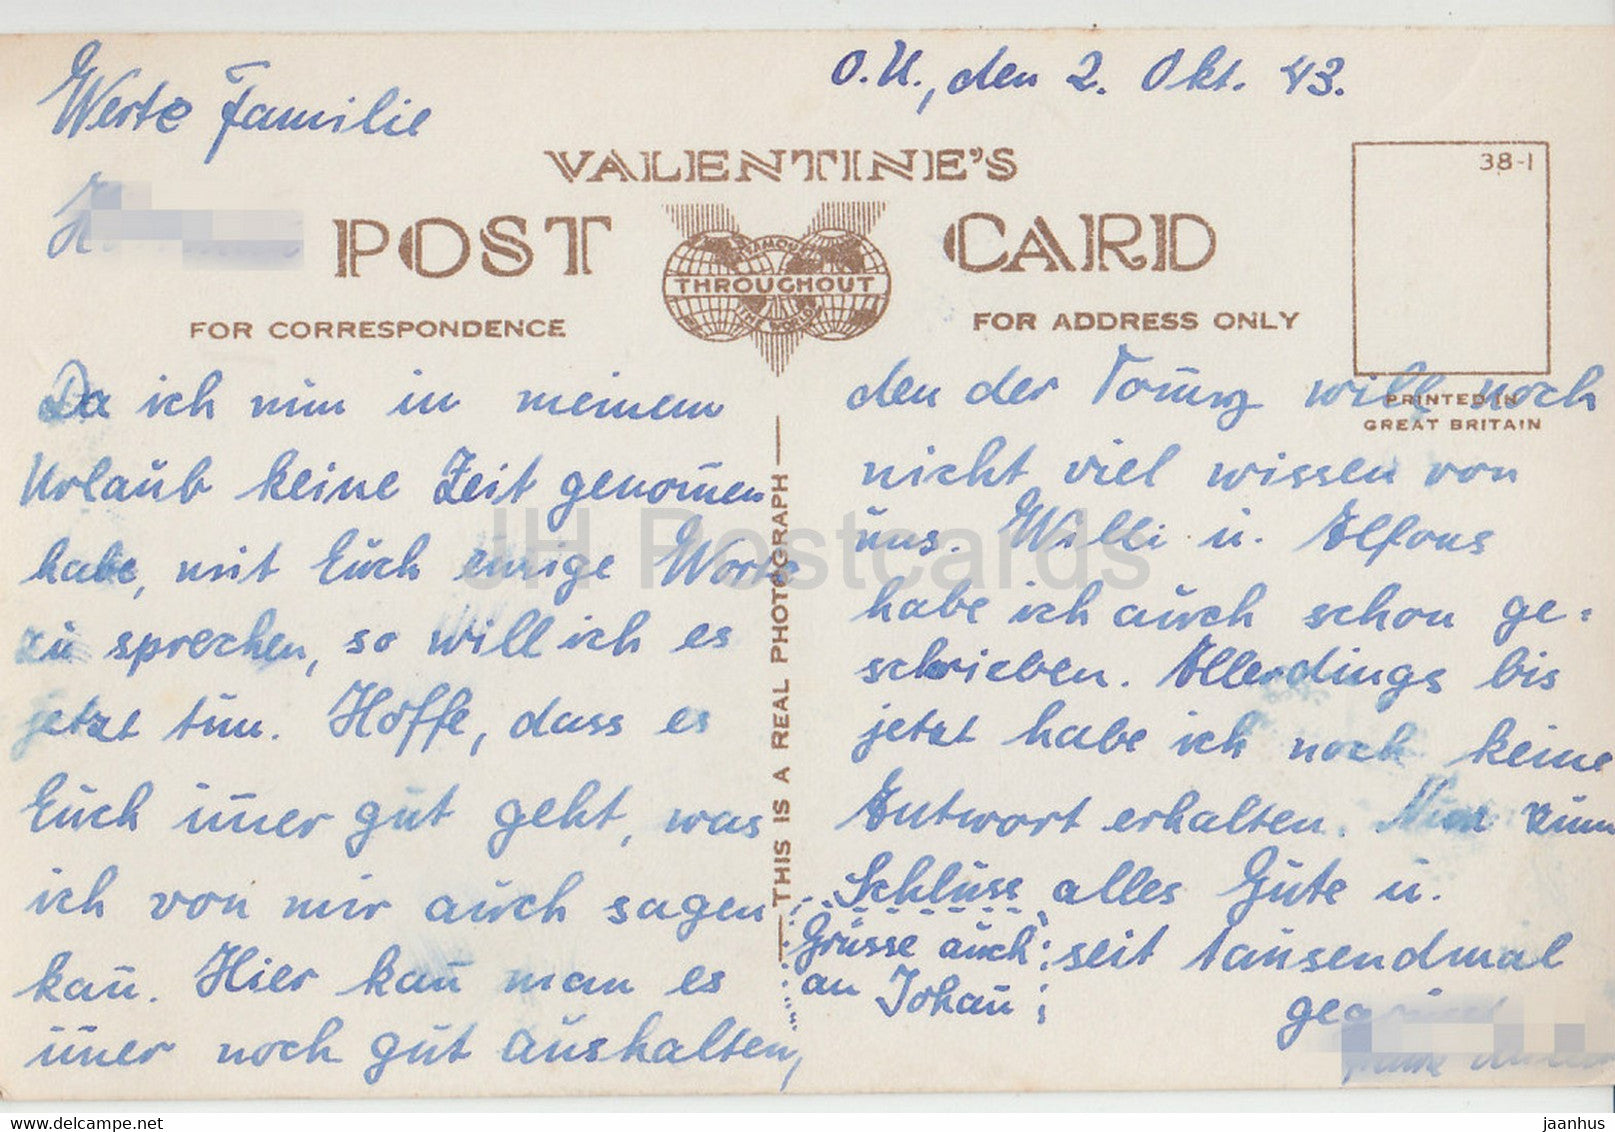 Werte Familie
O.U., den 2. Okt. 43.
VALENTINE'S
POST CARD
FAMOUS
THROUGHOUT
THE WORLD
38-1
FOR CORRESPONDENCE
FOR ADDRESS ONLY
PRINTED IN
GREAT BRITAIN
THIS IS A REAL PHOTOGRAPH
Da ich nun in meinem
Urlaub keine Zeit genom̄en
habe, mit Euch einige Worte
zu sprechen, so will ich es
jetzt tun. Hoffe, dass es
Euch im̄er gut geht, was
ich von mir auch sagen
kan̄. Hier kan̄ man es
im̄er noch gut aushalten,
den der Tom̄y will noch
nicht viel wissen von
uns. Willi u. Alfons
habe ich auch schon ge=
schrieben. Allerdings bis
jetzt habe ich noch keine
Antwort erhalten. Nun zum
Schluss alles Gute u.
seit tausendmal
Grüsse auch
an Johan̄
JH Postcards
www.delcampe.net
jaanhus